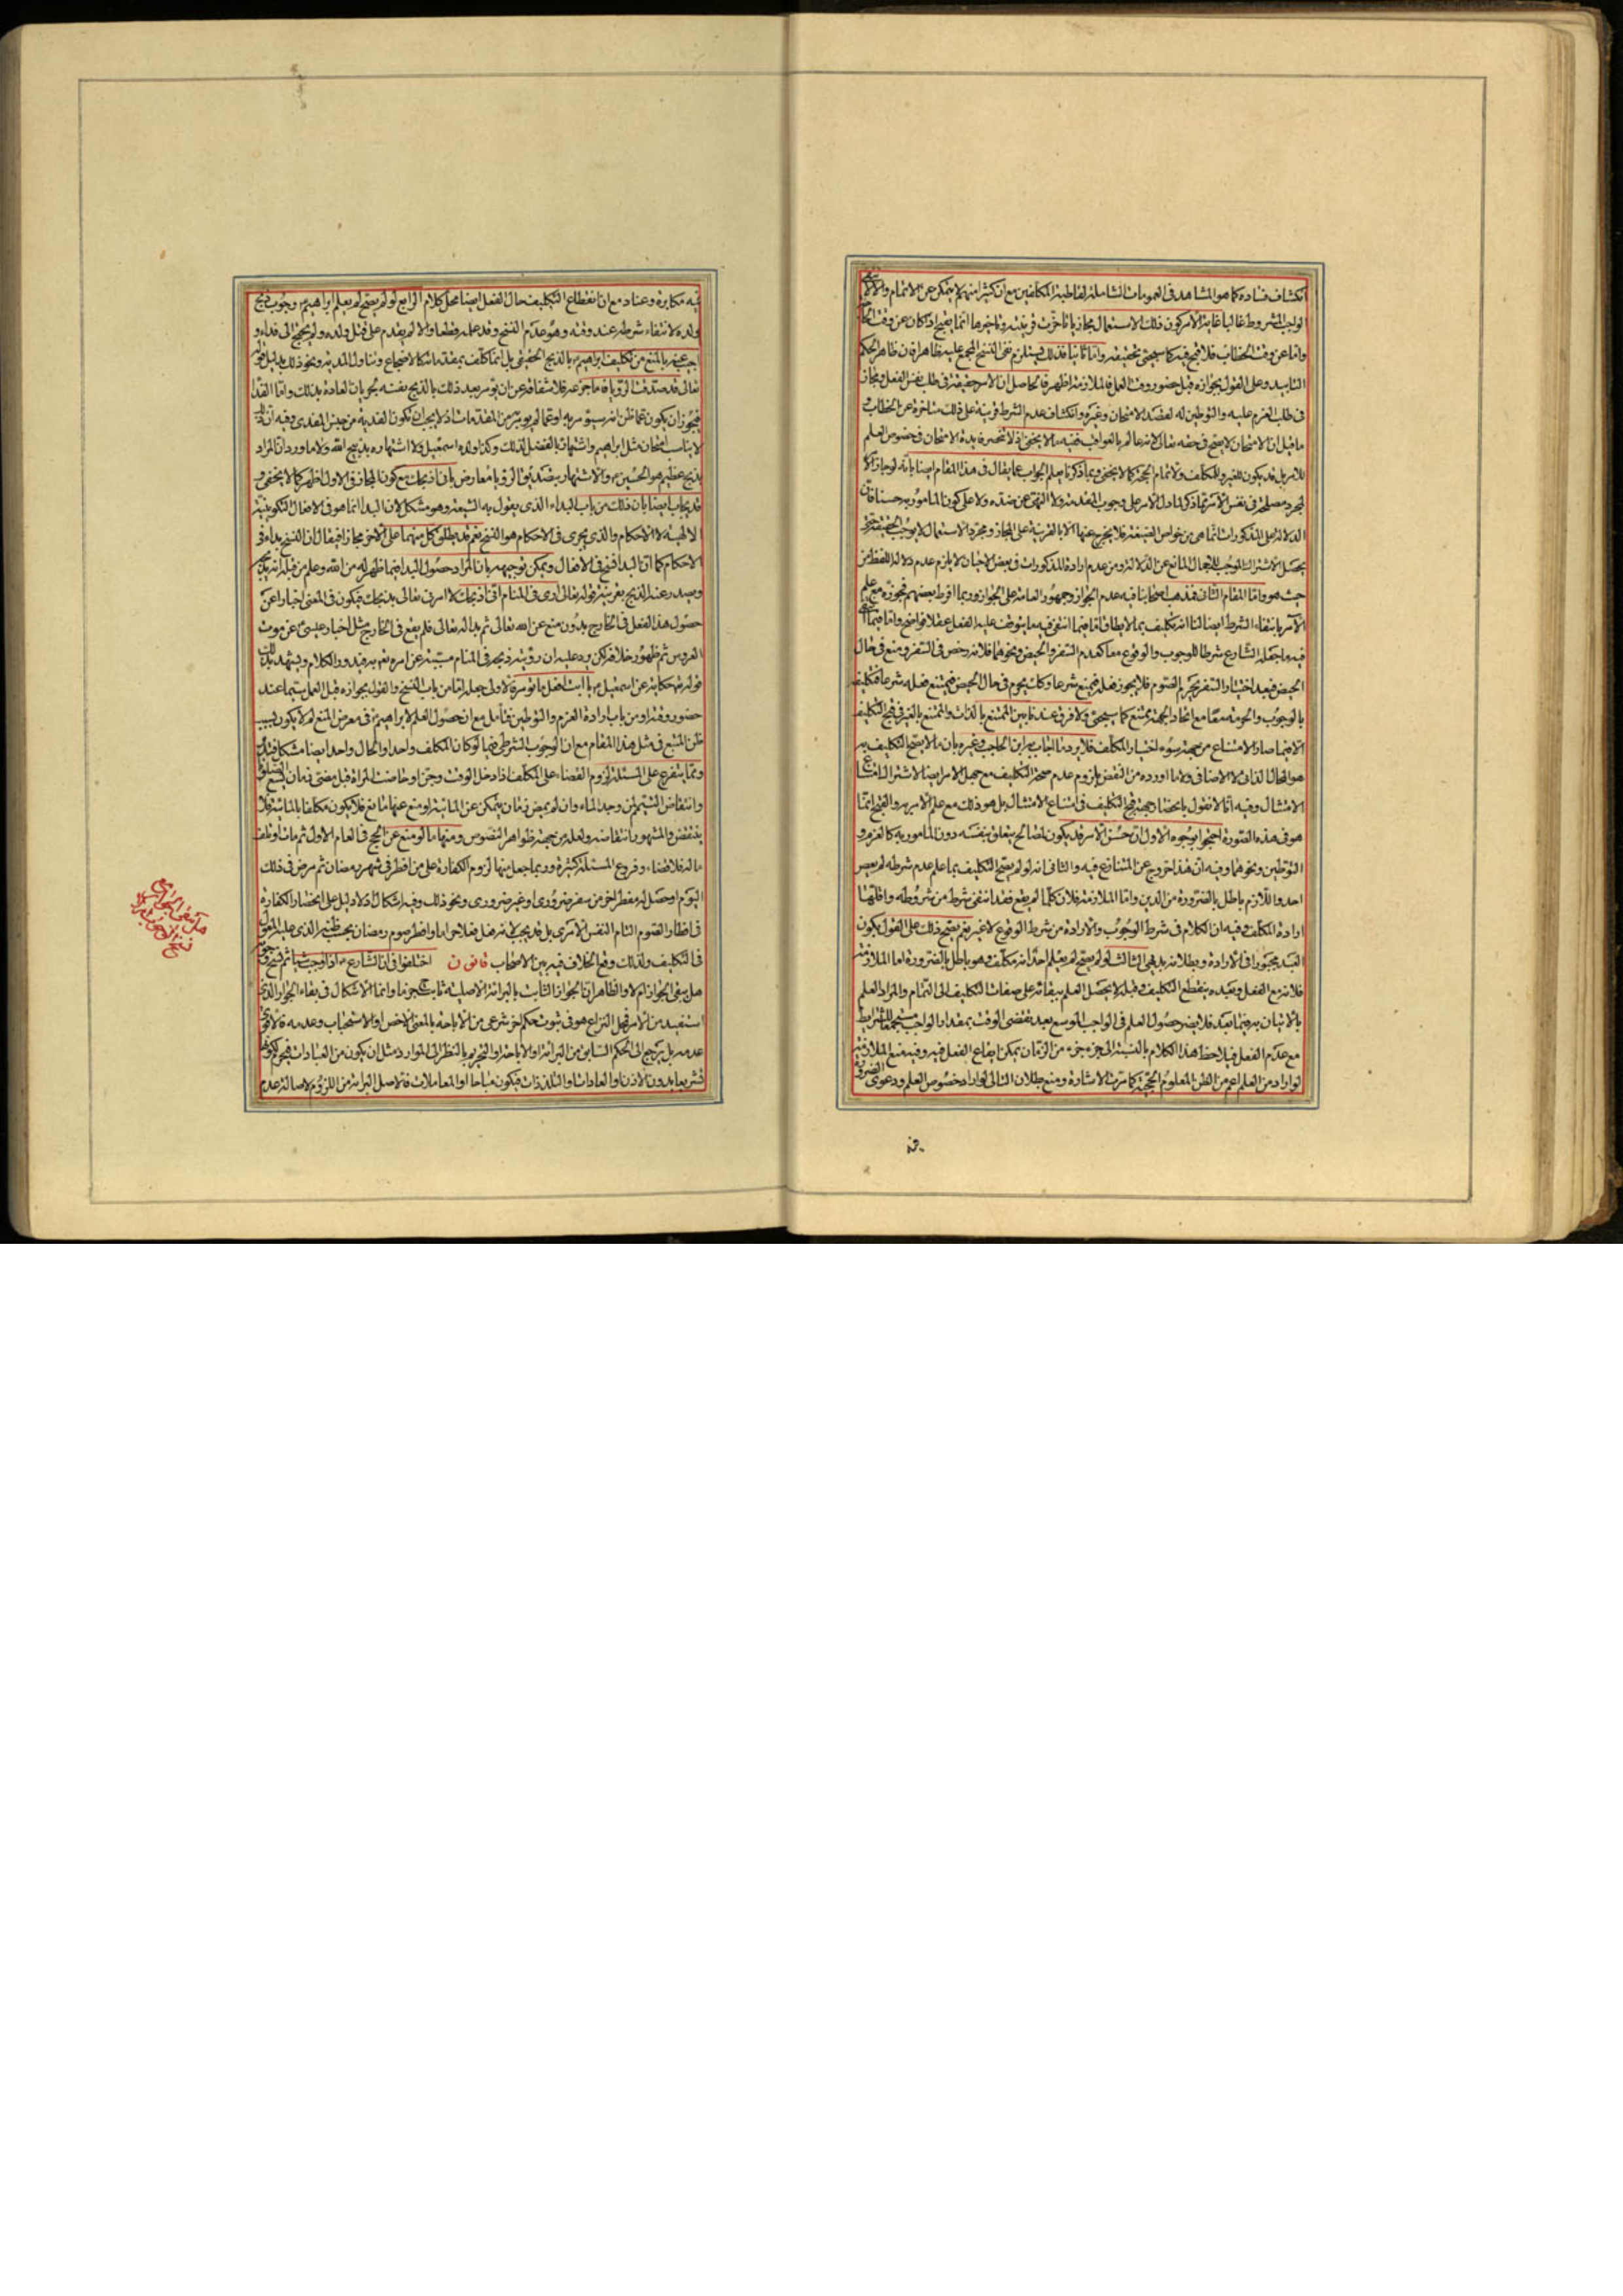 انكشاف فساده كما هو المشاهد فى العمومات الشاملة لقاطبة المكلفين مع ان كثيرا منهم لا يتمكن عن الاتمام والاولى
الواجب المشروط غالبا غاية الامر كون ذلك الاستعمال مجازيا تاخرت قرينته وتاخيرها انما يقبح اذا كان عن وقت الحاجة
واما عن وقت الخطاب فلا قبح فيه كما سيجئ تحقيقه واما ثانيا فذلك يستلزم نفى النسخ المجمع عليه ظاهرا فان ظاهر الحكم
التابيد وعلى القول بجوازه قبل حضور وقت العمل فالملازمة اظهر فالحاصل ان الامر حقيقة فى طلب نفس الفعل ومجاز
فى طلب العزم عليه والتوطين له لقصد الامتحان وغيره وانكشاف عدم الشرط قرينة على ذلك متاخرة عن الخطاب و
ما قيل ان الامتحان لا يصح فى حقه تعالى لانه عالم بالعواقب ففيه ما لا يخفى اذ لا تنحصر فايدة الامتحان فى خصوص العلم
للامر بل قد يكون للغير وللمكلف ولاتمام الحجة كما لا يخفى وبما ذكرنا يعلم الجواب عما يقال فى هذا المقام ايضا بانه لو جاز الامر
لمجرد مصلحة فى نفس الامر لما دل الامر على وجوب المقدمة ولا النهى عن ضده ولا على كون المامور به حسنا فان
الدلالة على المذكورات انما هى من خواص الصيغة فلا يخرج عنها الا بالقرينة على المجاز ومجرد الاستعمال لا يوجب الحقيقة حتى
يحصل الاشتراك الموجب للاجمال المانع عن الدلالة ومن عدم ارادة المذكورات فى بعض الاحيان لا يلزم عدم دلالة اللفظ من
حيث هو واما المقام الثانى فذهب اصحابنا فيه عدم الجواز وجمهور العامة على الجواز وربما افرط بعضهم فجوزه مع علم
الآمر بانتفاء الشرط ايضا لنا انه تكليف بما لا يطاق اما فيما انتفى فيه ما يتوقف عليه الفعل عقلا فواضح واما فيما
فيه ما جعله الشارع شرطا للوجوب والوقوع معا كعدم السفر والحيض ونحوهما فلانه رخص فى السفر ومنع فى حال
الحيض فبعد اختيار السفر يحرم الصوم فلا يجوز فعله فيمنع شرعا وكانت يحرم فى حال الحيض فيمتنع فعله شرعا فتكليفه
بالوجوب والحرمة معا مع اتحاد الجهة ممتنع كما سيجئ ولا فرق عندنا بين الممتنع بالذات والممتنع بالغير فى قبح التكليف
الا فيما صار الامتناع من جهة سوء اختيار المكلف فلا يرد ما اجاب به ابن الحاجب وغيره بان ما لا يصح التكليف به
هو المحال الذاتى لا الاضافى ولا ما اورده من النقض بلزوم عدم صحة التكليف مع جهل الامر ايضا لاشتراك امتناع
الامتثال وفيه انا لا نقول بانحصار جهة قبح التكليف فى امتناع الامتثال بل هو ذلك مع علم الامر به والقبح انما
هو فى هذه الصورة احتجوا بوجوه الاول ان حسن الامر قد يكون لمصالح يتعلق بنفسه دون المامور به كالعزم و
التوطين ونحوهما وفيه ان هذا خروج عن المتنازع فيه والثانى انه لو لم يصح التكليف بما علم عدم شرطه لم يعص
احد واللازم باطل بالضرورة من الدين واما الملازمة فلان كلما لم يقع فقد انتفى شرط من شروطه واقلها
ارادة المكلف وفيه ان الكلام فى شرط الوجوب والارادة من شرط الوقوع لا غير نعم يصح ذلك على القول بكون
العبد مجبورا فى الارادة وبطلانه بديهى الثالث لو لم يصح لم يعلم احد انه مكلف وهو باطل بالضرورة اما الملازمة
فلانه مع الفعل وبعده ينقطع التكليف وقبله لا يحصل العلم ببقائه على صفات التكليف الى التمام والمراد العلم
بالاتيان به فيما بعد فلا يضر حصول العلم فى الواجب الموسع بعد تقضى الوقت بمقدار الواجب مستجمعا للشرايط
مع عدم الفعل فيلاحظ هذا الكلام بالنسبة الى جزء جزء من الزمان يمكن ايقاع الفعل فيه وفيه منع الملازمة
لو اراد من العلم اعم من الظن المعلوم الحجية كما مرت الاشارة ومنع بطلان التالى لو اراد خصوص العلم ودعوى الضرورة
فيه مكابرة وعناد مع ان انقطاع التكليف حال الفعل ايضا محل كلام الرابع لو لم يصح لم يعلم ابراهيم وجوب ذبح
ولده لانتفاء شرطه عند وقته وهو عدم النسخ وقد علمه قطعا والا لم يقدم على قتل ولده ولم يحتج الى فداء و
اجيب عنه بالمنع من تكليف ابراهيم بالذبح الحقيقى بل انما كلف بمقدماته كالاضجاع وتناول المدية ونحو ذلك بدليل قوله
تعالى قد صدقت الرؤيا فاما جزعه فلاشفاقه عن ان يؤمر بعد ذلك بالذبح نفسه لجريان العادة بذلك واما الفداء
فيجوز ان يكون عما ظن انه سيؤمر به او عما لم يؤمر به من المقدمات اذ لا يجب ان تكون الفدية من جنس المفدى وفيه ان ذلك
لا يناسب امتحان مثل ابراهيم واشتهاره بالفضل لذلك وكذا ولده اسمعيل ولا اشتهاره بذبيح الله ولا ما ورد ان المراد
بذبح عظيم هو الحسين والاشتهار بصدق الرؤيا معارض بانى اذبحك مع كون المجاز فى الاول اظهر كما لا يخفى و
قد يجاب ايضا بان ذلك من باب البداء الذى يقول به الشيعة وهو مشكل لان البداء انما هو فى الافعال التكوينية
الالهية لا الاحكام والذى يجرى فى الاحكام هو النسخ نعم قد يطلق كل منهما على الاخر مجازا فيقال ان النسخ بداء فى
الاحكام كما ان البداء نسخ فى الافعال ويمكن توجيهه بان المراد حصول البداء فيما ظهر له من الله وعلم من قبله انه يذبح
ويصدر عنه الذبح بقرينة قوله تعالى ارى فى المنام انى اذبحك لا امرنى تعالى بذبحك فيكون فى المعنى اخبارا عن
حصول هذا الفعل فى الخارج بدون منع عن الله تعالى ثم بدا لله تعالى فلم يقع فى الخارج مثل اخبار عيسى عن موت
العروس ثم ظهور خلافه لكن يرد عليه ان رؤيته ذبحه فى المنام مسببة عن امره تعم به فيدور الكلام ويشهد بذلك
قوله تعم حكاية عن اسمعيل يا ابت افعل ما تؤمر فالاولى جعله اما من باب النسخ والقول بجوازه قبل العمل سيما عند
حضور وقته او من باب ارادة العزم والتوطين فتامل مع ان حصول العلم لابراهيم فى معرض المنع لم لا يكون بسبب
ظن المتبع فى مثل هذا المقام مع ان الوجوب الشرطى فيما لو كان المكلف واحدا والحال واحدا ايضا مشكل فتدبر
ومما يتفرع على المسئلة لزوم القضاء على المكلف اذا دخل الوقت وجن او حاضت المراة قبل مضى زمان يسع الصلوة
وانتقاض التيمم لمن وجد الماء وان لم يمض زمان يتمكن عن المائية او منع عنها مانع فلا يكون مكلفا بالمائية فلا
ينتقض والمشهور انتقاضه ولعله من جهة ظواهر النصوص ومنها ما لو منع عن الحج فى العام الاول ثم مات او تلف
ماله فلا قضاء وفروع المسئلة كثيرة وربما جعل منها لزوم الكفارة على من افطر فى شهر رمضان ثم مرض فى ذلك
اليوم او حصل له مفطر اخر من سفر ضرورى او غير ضرورى ونحو ذلك وفيه اشكال اذ لا دليل على انحصار الكفارة
فى افطار الصوم التام النفس الامرى بل قد يجب لانه فعل فعلا حراما وافطر صوم رمضان بحسب ظنه الذى عليه المعول
فى التكليف ولذلك وقع الخلاف فيه بين الاصحاب قانون اختلفوا فى ان الشارع اذا اوجب شيئا ثم نسخ وجوبه
هل يبقى الجواز ام لا والظاهر ان الجواز الثابت بالبرائة الاصلية ثابت جزما وانما الاشكال فى بقاء الجواز الذى
استفيد من الامر فهل النزاع هو فى ثبوت حكم اخر شرعى من الاباحة بالمعنى الاخص او الاستحباب وعدمه فالاقوى
عدمه بل يرجع الى الحكم السابق من البرائة او الاباحة او التحريم بالنظر الى الموارد مثل ان يكون من العبادات فيحرم لكونها
تشريعا بدون الاذن او العادات والتلذذات فيكون مباحا او المعاملات فالاصل البرائة من اللزوم لاصالة عدم